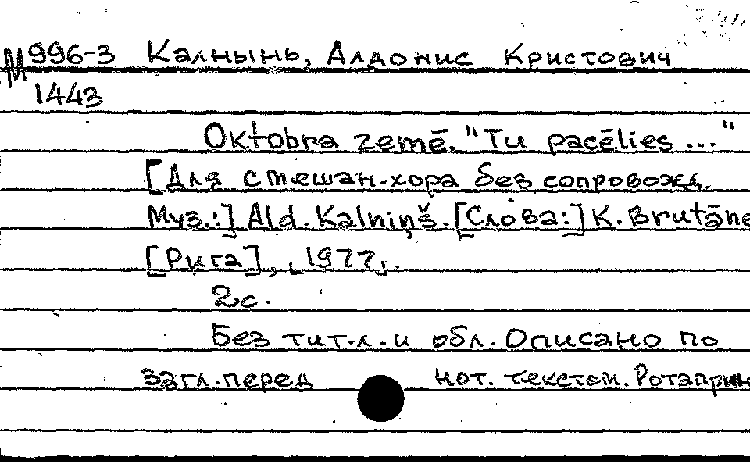 М996-3 Калнынь, Алдонис Кристович
1443
Oktobra zemē. "Tu pacēlies ..."
[Для смешан. хора без сопровожд.
Муз.:] Ald. Kalniņš. [Слова:] K. Brutāne
[Рига], [1977].
2 с.
Без тит. л. и обл. Описано по
загл. перед нот. текстом. Ротаприн